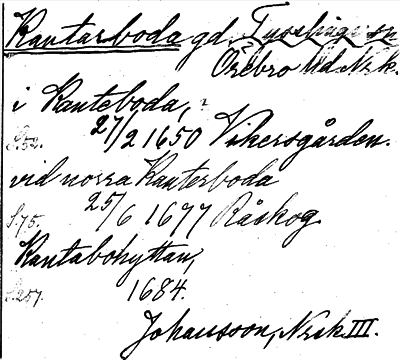 Kantarboda gd. Tysslinge sn
Örebro hd Nrk.
i Kanteboda,
S.52. 27/2 1650 Vikersgården.
vid norra Kanterboda
S.75. 25/6 1677 Råskog
Kantabohyttan,
S.257. 1684.
Johansson, Nrk III.